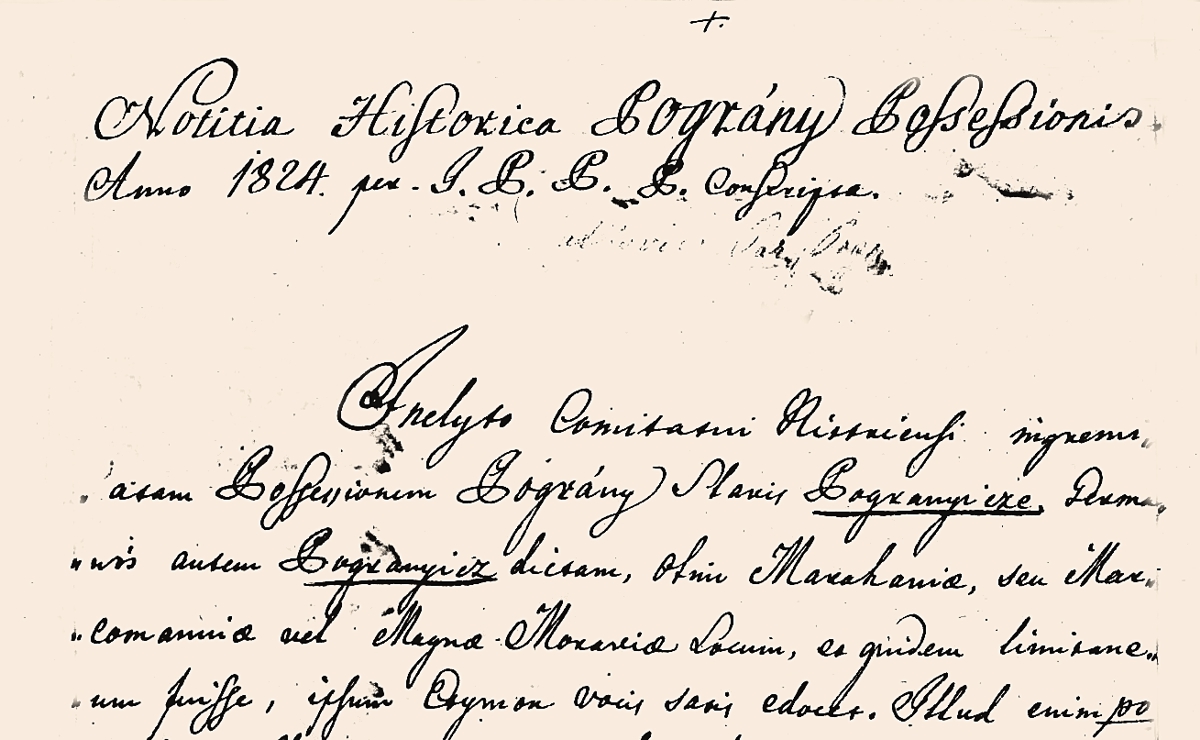 +.
Notitia Historica Pográny Possessionis
Anno 1824. per J. P. P. P. Conscripta.
Inclyto Comitatui Nittriensi ingremi„
„atam Possessionem Pográny Slavis Pogranyicze, Germa„
„nis autem Pogranyicz dictam, Olim Marahaniæ, seu Mar„
„comanniæ vel Magnæ Moraviæ Locum, et quidem limitane„
„um fuisse, ipsum Etymon vocis satis edocet. Illud enim po